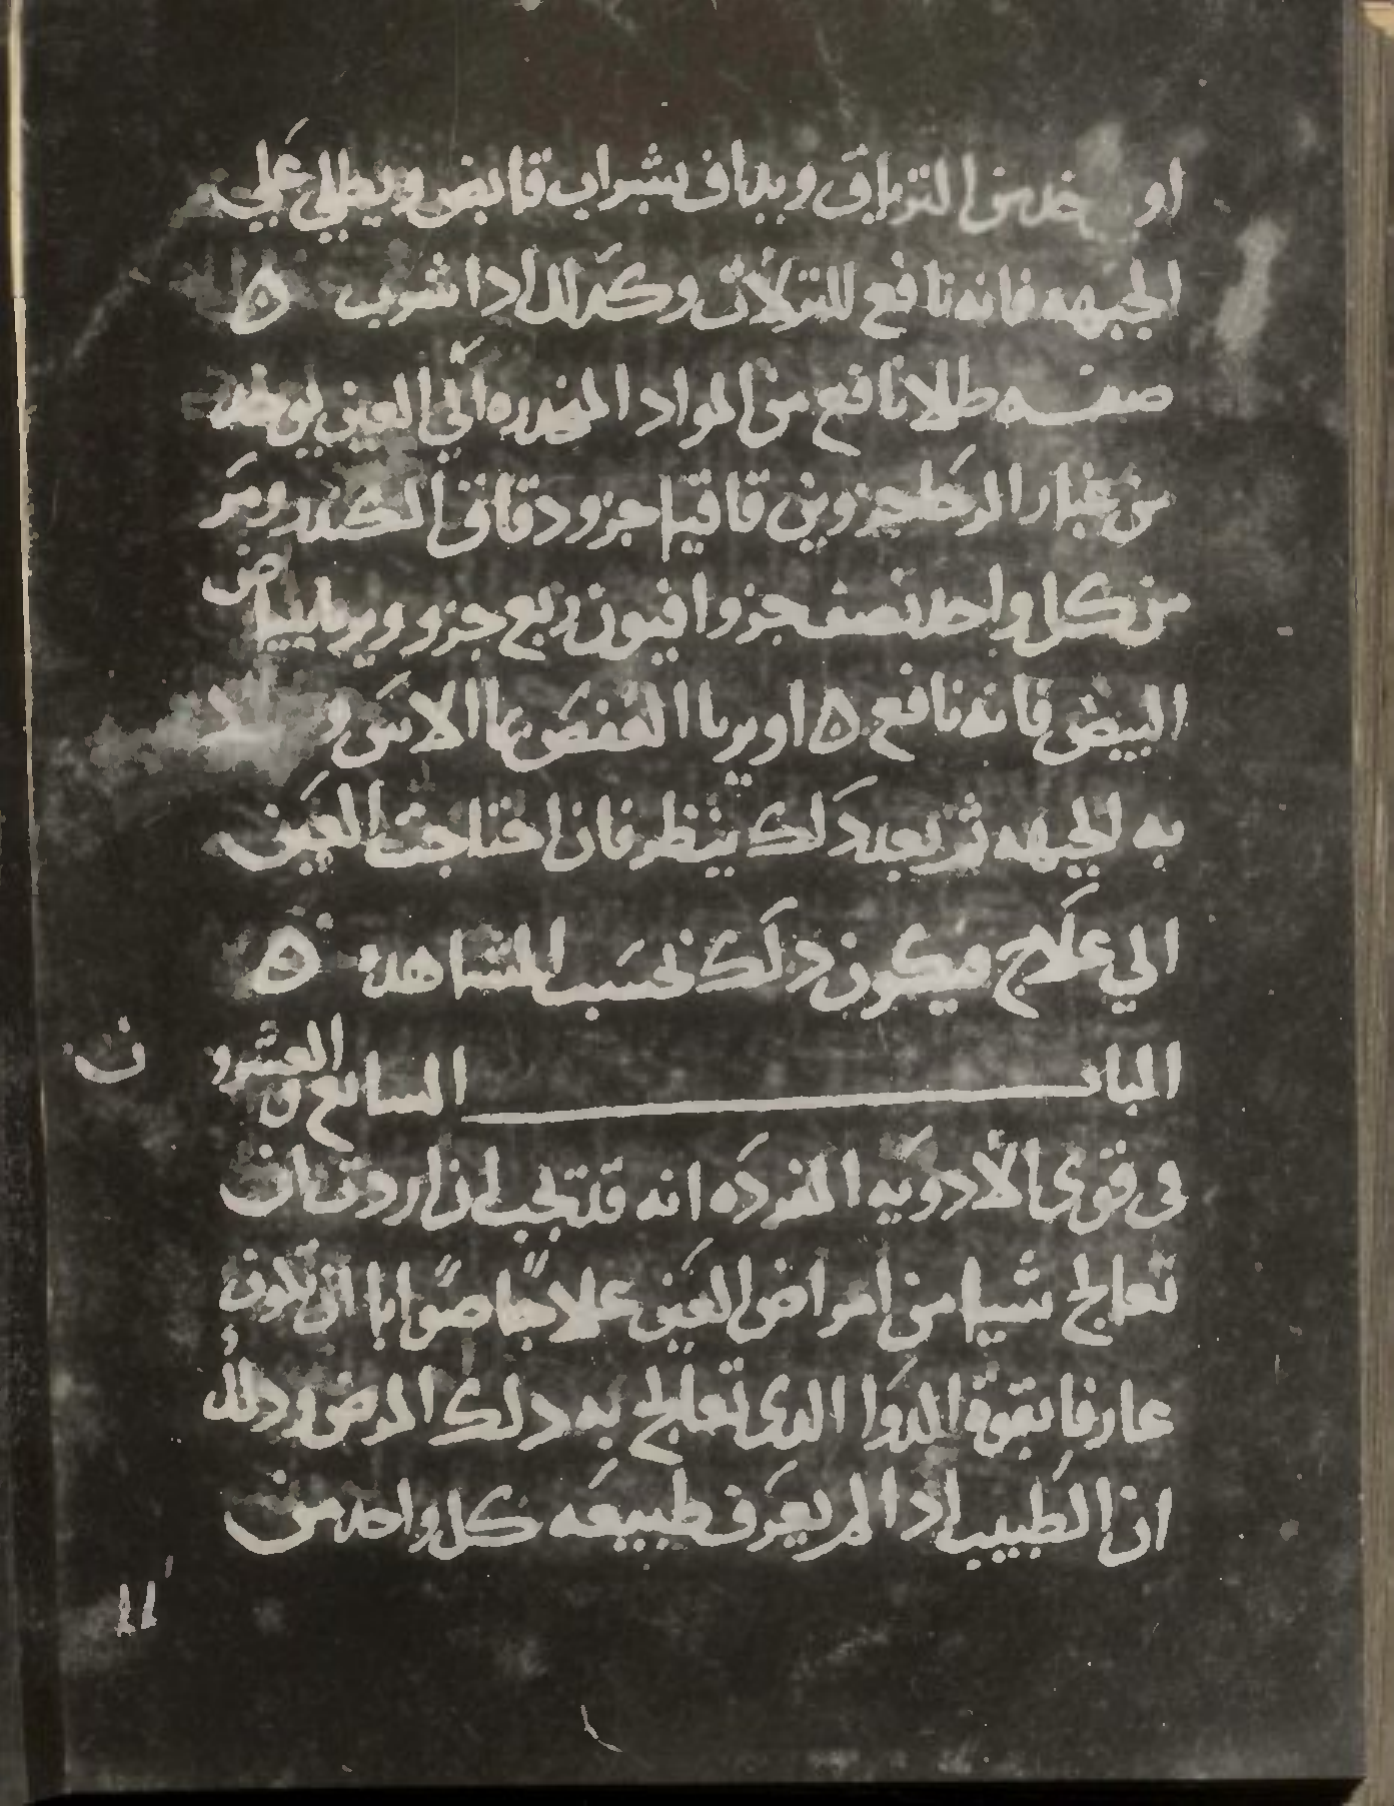 او يوخذ من الترياق ويداف بشراب قابض ويطلي علي
الجبهه فانه نافع للنزلات وكذلك اذا شرب ه
صفه طلا نافع من المواد المنحدره الي العين يوخذ
من غبار الرحا جزوين قاقيا جزو دقاق الكندر ومر
من كل واحد نصف جزو افيون ربع جزو ويربا ببياض
البيض فانه نافع ه او يربا العفص بما الاس و
به الجبهه ثم بعد ذلك ينظر فان احتاجت العين
الي علاج فيكون ذلك بحسب المشاهده ه
الباب السابع والعشرون
في قوي الأدويه المفرده انه قد تجب لمن اردت ان
تعالج شيا من امراض العين علاجًا صوابًا ان تكون
عارفا بقوة الدوا الدي تعالج به دلك المرض ودلك
ان الطبيب ادا لم يعرف طبيعه كل واحد من